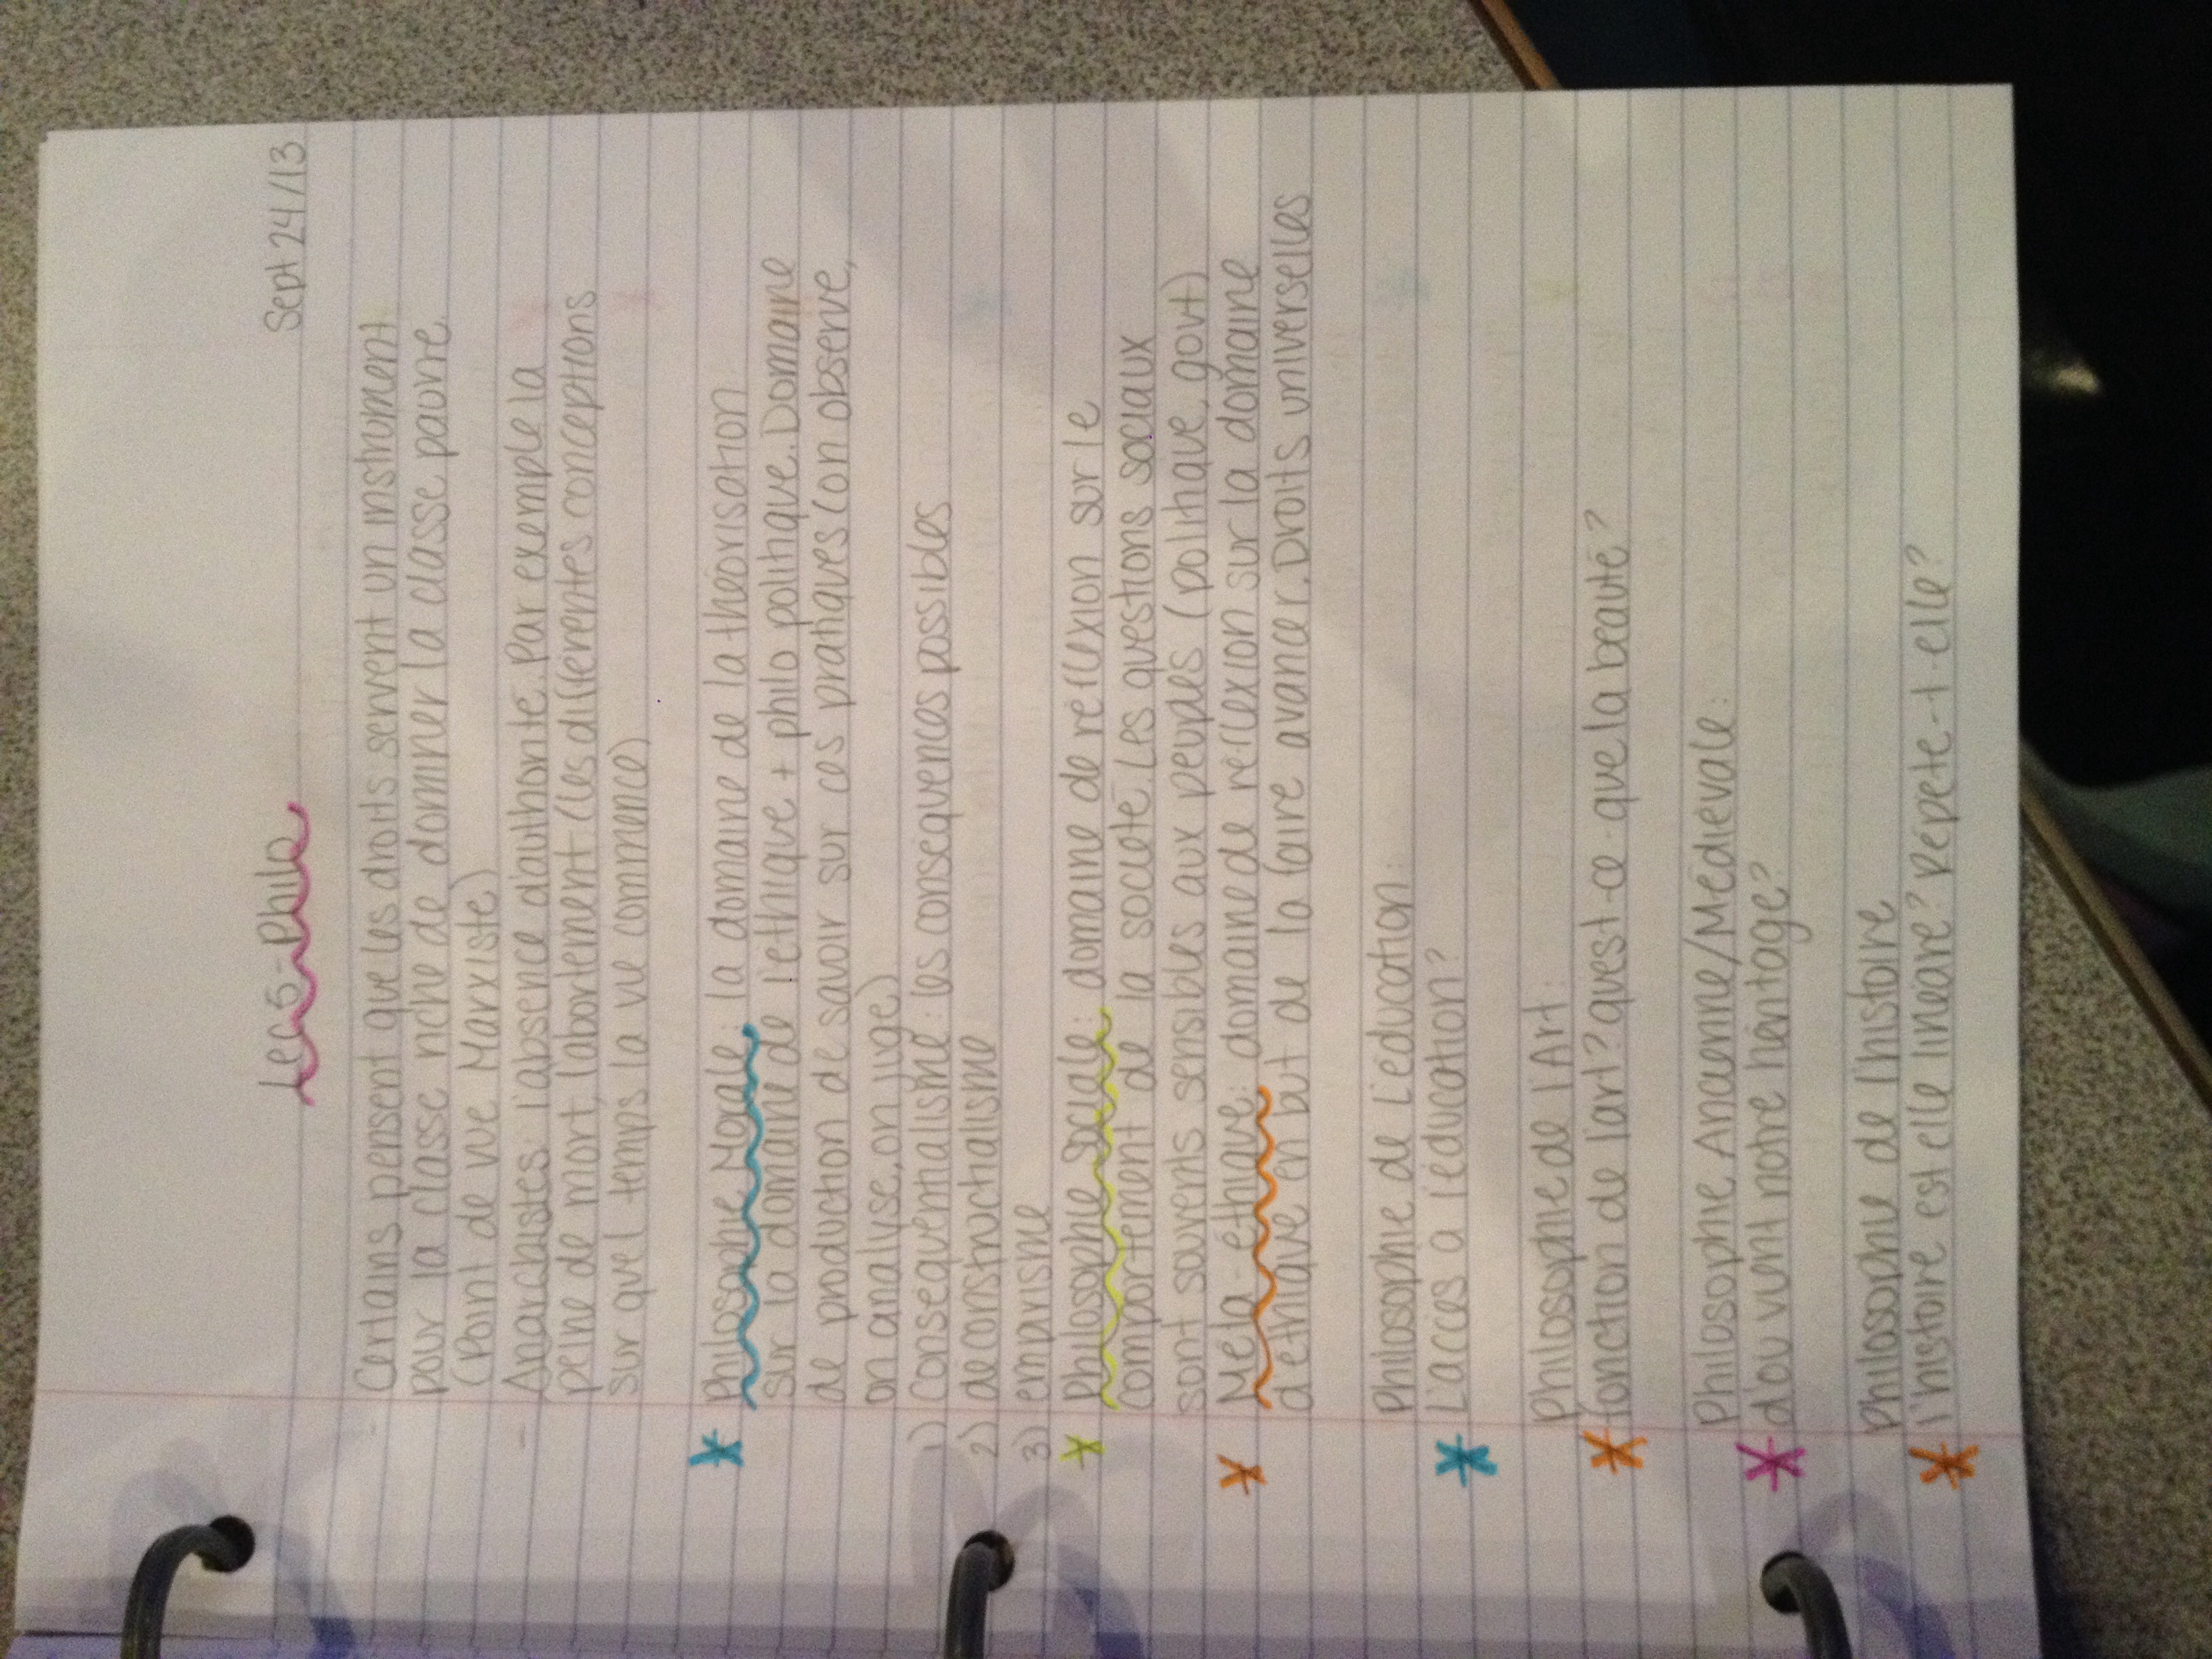 Lec 5 - Philo
Sept 24/13
- Certains pensent que les droits servent un instrument
pour la classe riche de dominer la classe pauvre.
(Point de vue Marxiste)
- Anarchistes: l'absence d'authorité. Par exemple la
peine de mort, l'abortement (les différentes conceptions
sur quel temps la vie commence)
* Philosophie Morale: la domaine de la théorisation
sur la domaine de l'ethique + philo politique. Domaine
de production de savoir sur ces pratiques (on observe,
on analyse, on juge)
1) Consequentialisme: les consequences possibles
2) deconstructialisme
3) emparisme
* Philosophie sociale: domaine de reflexion sur le
comportement de la société. Les questions sociaux
sont souvents sensibles aux peuples (politique, govt)
* Meta-éthique: domaine de réflexion sur la domaine
d'ethique en but de la faire avancer. Droits universelles
Philosophie de L'éducation:
* L'acces a l'éducation?
Philosophie de l'Art:
* fonction de l'art? quest-ce-que la beauté?
Philosophie Ancienne/Médiévale:
* d'ou vient notre héritage?
Philosophie de l'histoire
* l'histoire est elle lineare? Répete-t-elle?